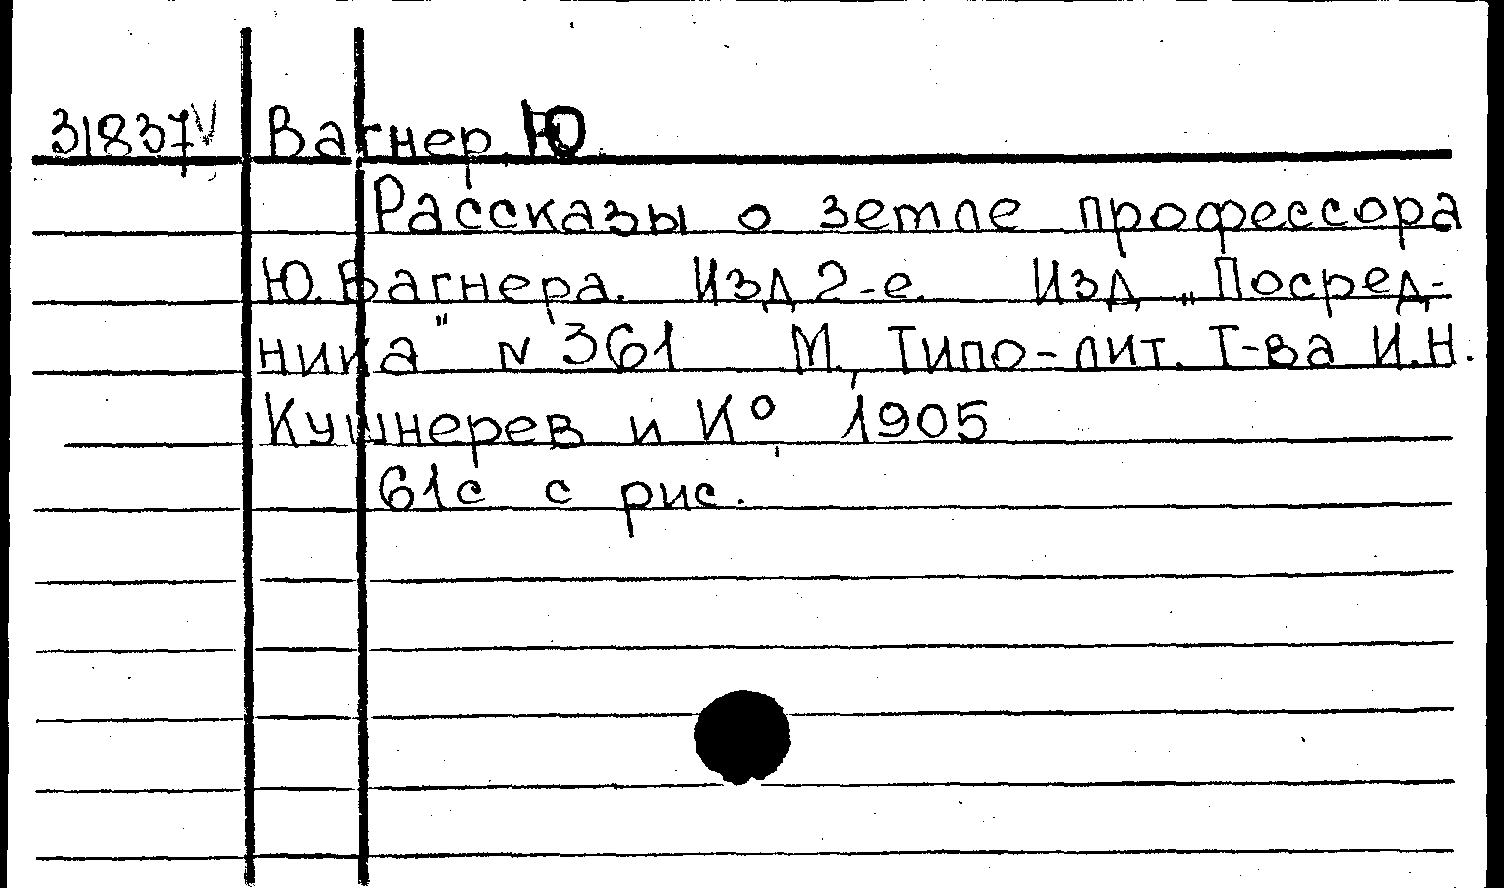 31837V Вагнер, Ю.
Рассказы о земле профессора
Ю. Вагнера. Изд 2-е. Изд „Посред-
ника" N 361 М., Типо-лит. Т-ва И.Н.
Кушнерев и К°, 1905
61с с рис.